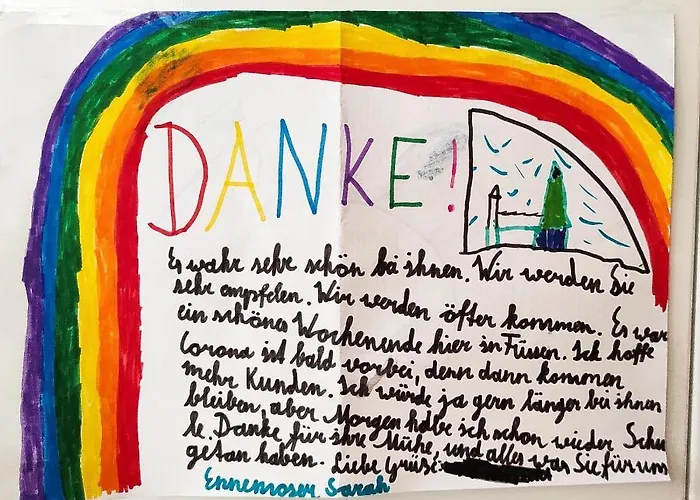 DANKE!
Es wahr sehr schön bei ihnen. Wir werden Sie
sehr empfelen. Wir werden öfter kommen. Es war
ein schönes Wochenende hier in Füssen. Ich hoffe
Corona ist bald vorbei, denn dann kommen
mehr Kunden. Ich würde ja gern länger bei ihnen
bleiben, aber Morgen habe ich schon wieder Schu
le. Danke für ihre Mühe, und alles was Sie für uns
getan haben. Liebe Grüße
Ennemoser Sarah